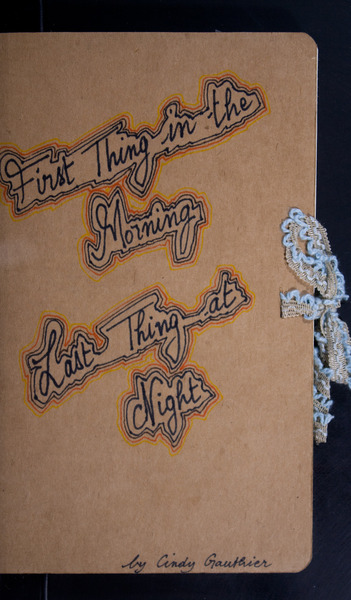 First Thing in the
Morning
Last Thing at
Night
by Cindy Gauthier